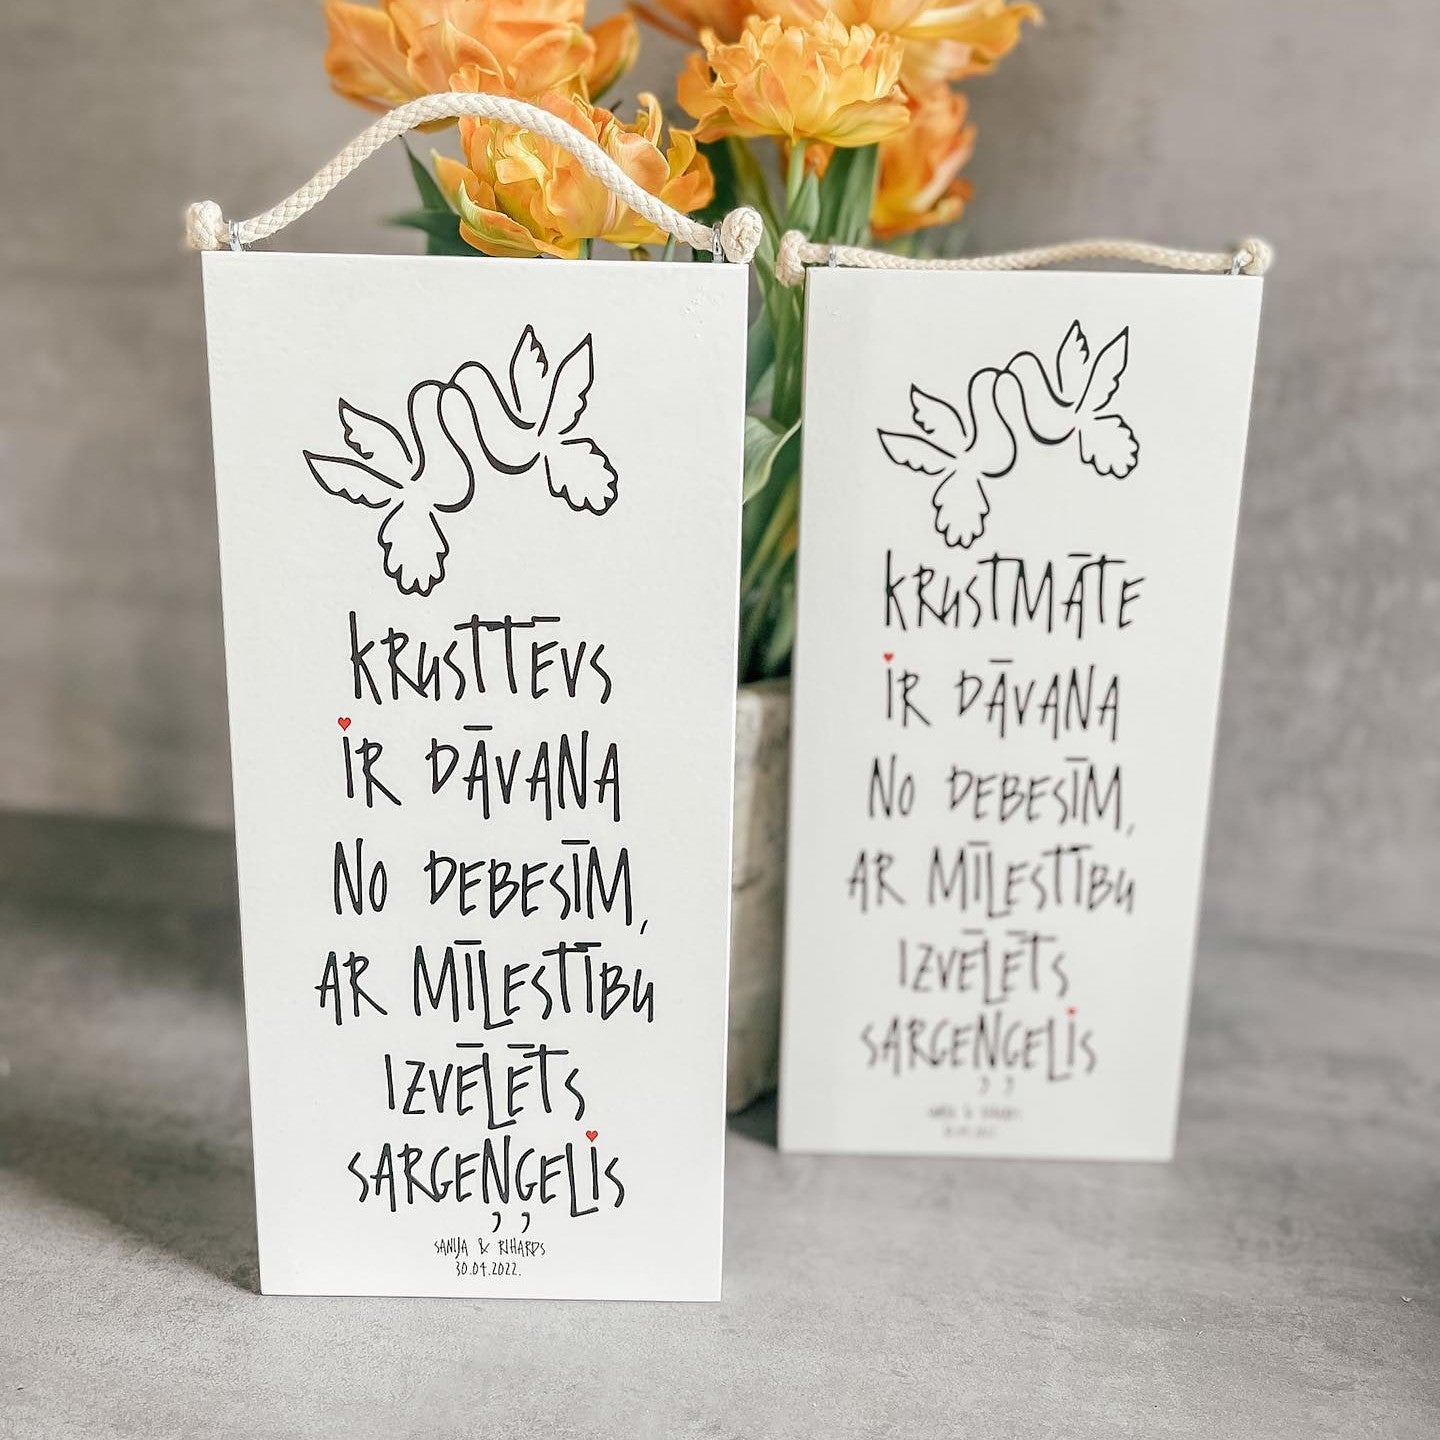 KRUSTTĒVS
IR DĀVANA
NO DEBESĪM,
AR MĪLESTĪBU
IZVĒLĒTS
SARGEŅĢELIS
SANIJA & RIHARDS
30.04.2022.
KRUSTMĀTE
IR DĀVANA
NO DEBESĪM,
AR MĪLESTĪBU
IZVĒLĒTS
SARGEŅĢELIS